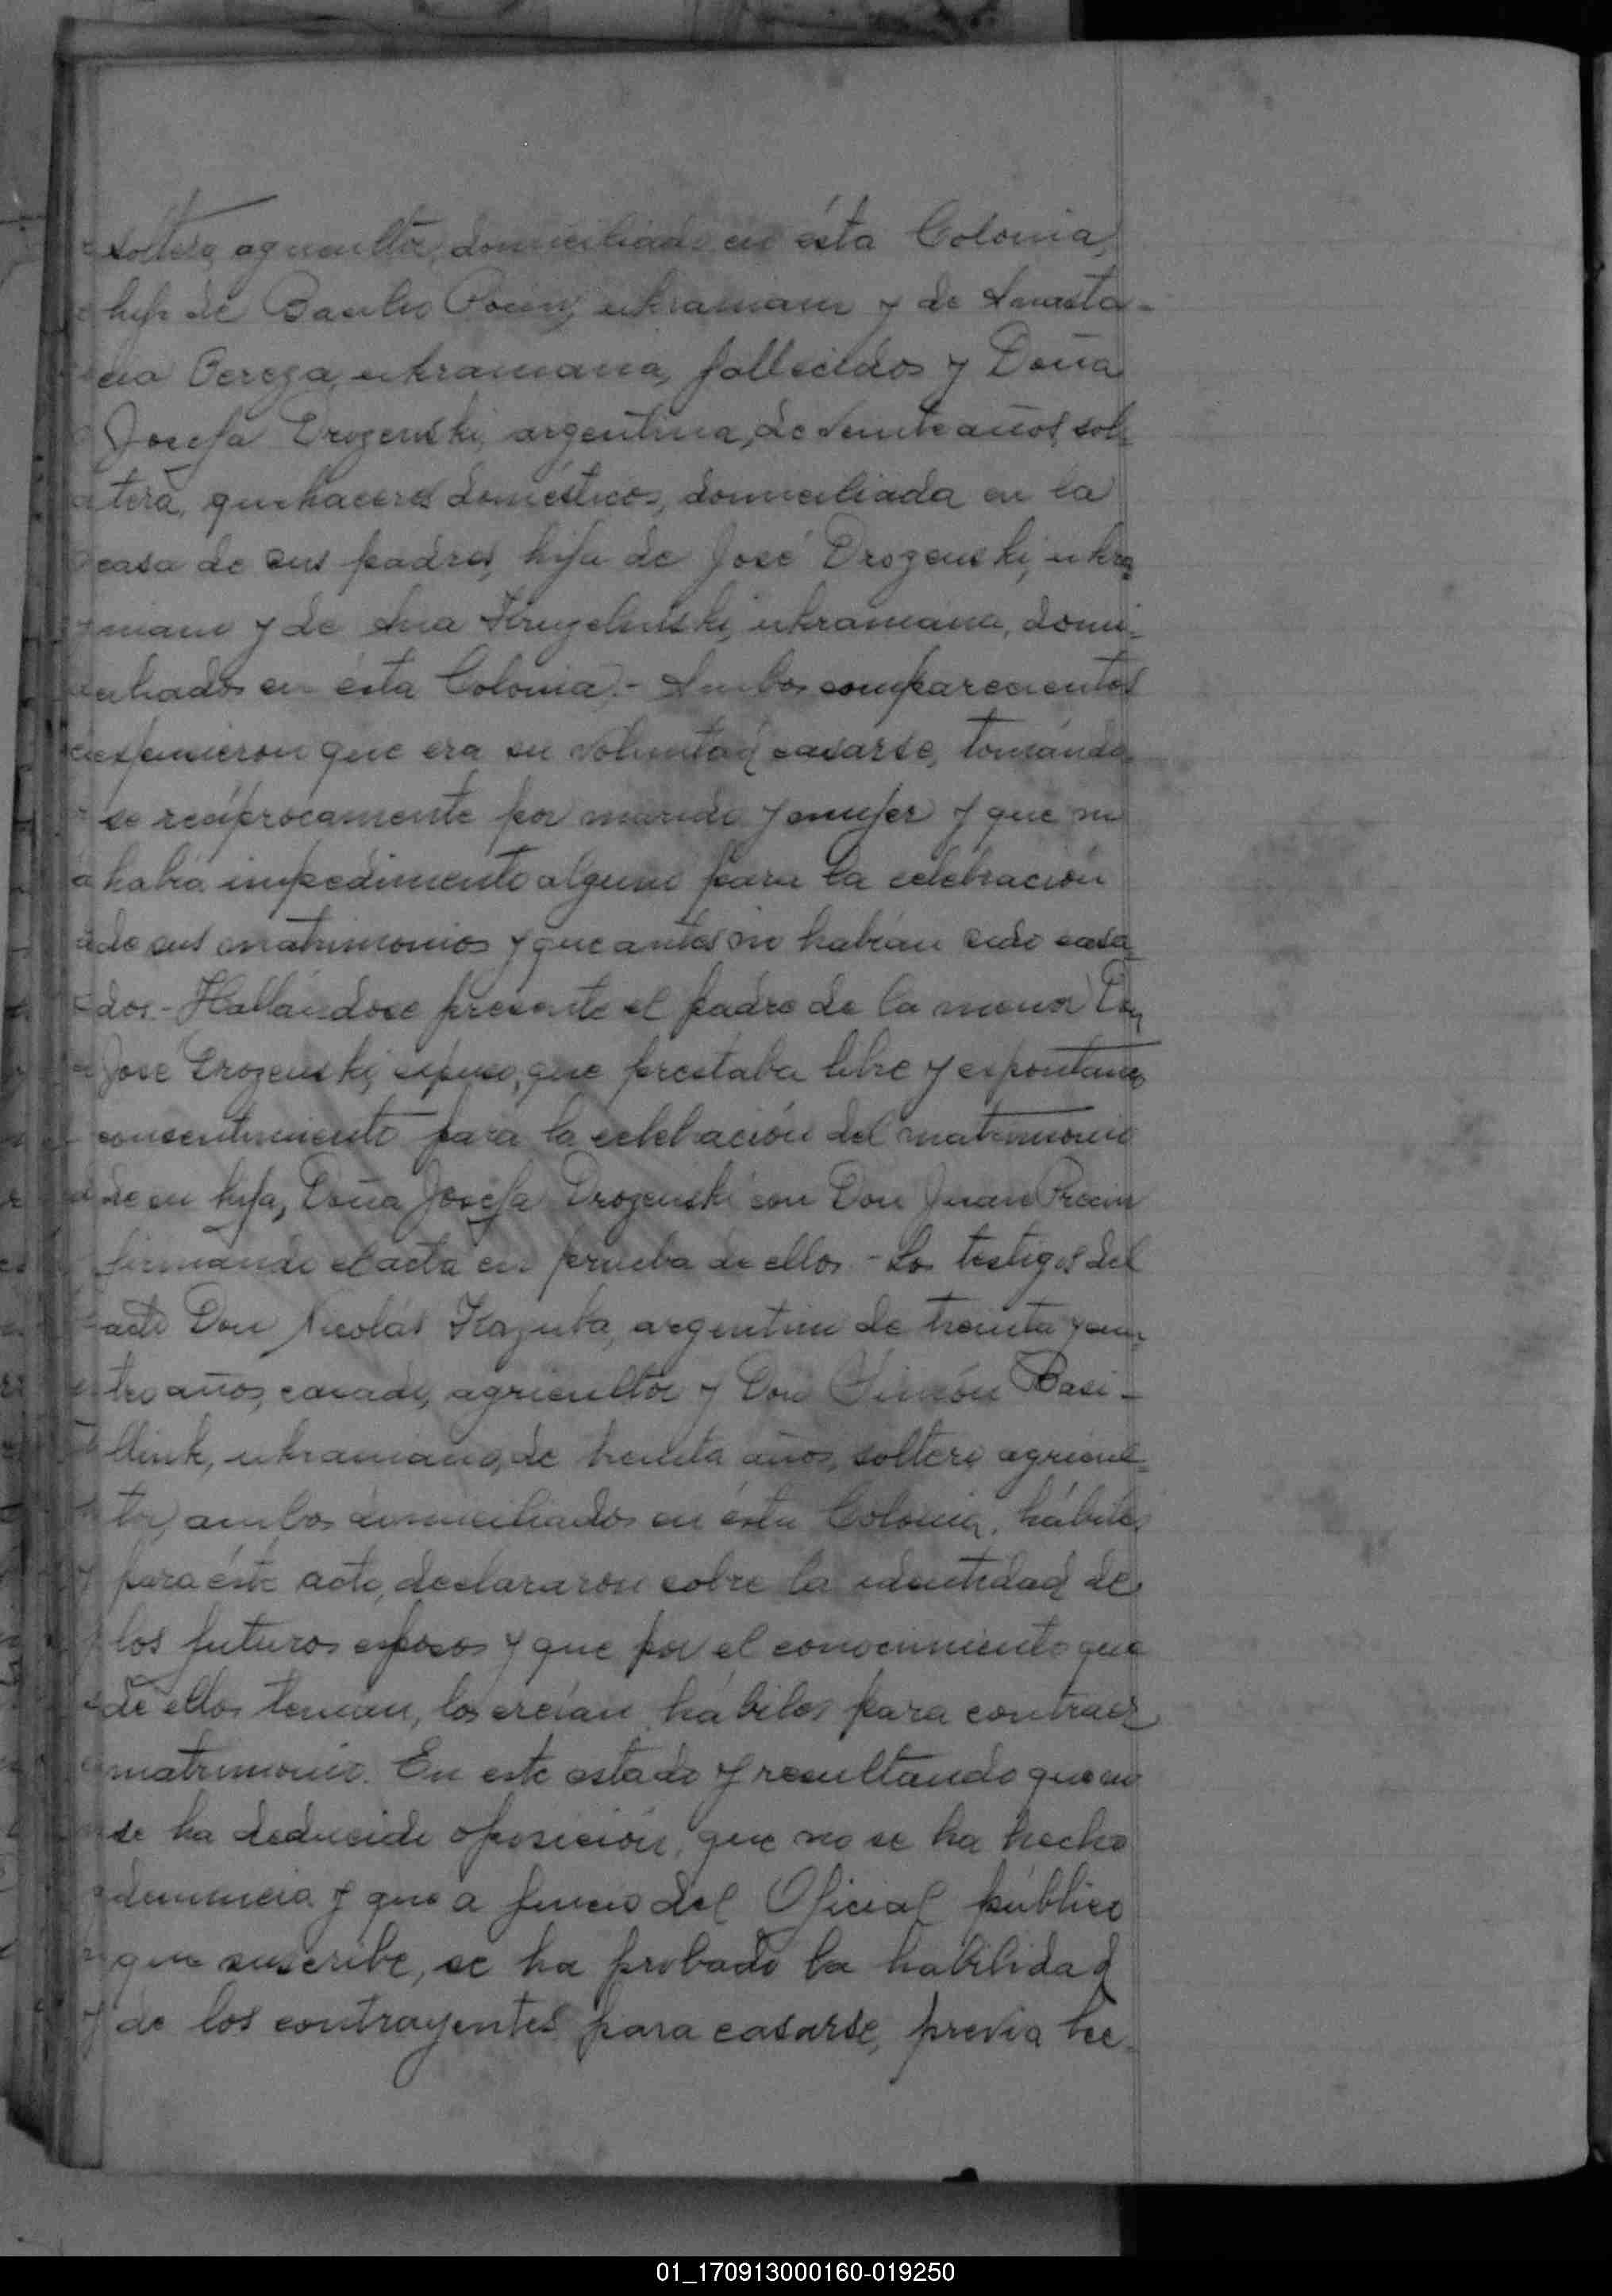 soltero, agricultor, domiciliado en ésta Colonia,
hijo de Basilio Pocin, ukraniano y de Anasta-
cia Bereza, ukraniana, fallecidos y Doña
Josefa Drozenski, argentina, de veinte años, sol-
tera, quehaceres domésticos, domiciliada en la
casa de sus padres, hija de José Drozenski, ukra-
niano y de Ana ukraniana, domi-
ciliados en ésta Colonia.- Ambos comparecientes
expusieron que era su voluntad casarse, tomándo-
se recíprocamente por marido y mujer y que no
había impedimento alguno para la celebración
de sus matrimonios y que antes no habían sido casa-
dos.- Hallándose presente el padre de la menor Don
José Drozenski, expuso, que prestaba libre y espontáneo
consentimiento para la celebración del matrimonio
de su hija, Doña Josefa Drozenski con Don Juan
firmando el acta en prueba de ellos.- Los testigos del
acto Don Nicolás Kazuba, argentino de treinta y cua-
tro años, casado, agricultor y Don Simón Basi-
llink, ukraniano, de treinta años, soltero, agricul-
tor, ambos domiciliados en ésta Colonia, hábiles
para éste acto, declararon sobre la identidad de
los futuros esposos y que por el conocimiento que
de ellos tenían, los creían hábiles para contraer
matrimonio. En este estado y resultando que no
se ha deducido oposición, que no se ha hecho
denuncia y que a juicio del Oficial público
que suscribe, se ha probado la habilidad
de los contrayentes para casarse, previa lec-
01_170913000160-019250